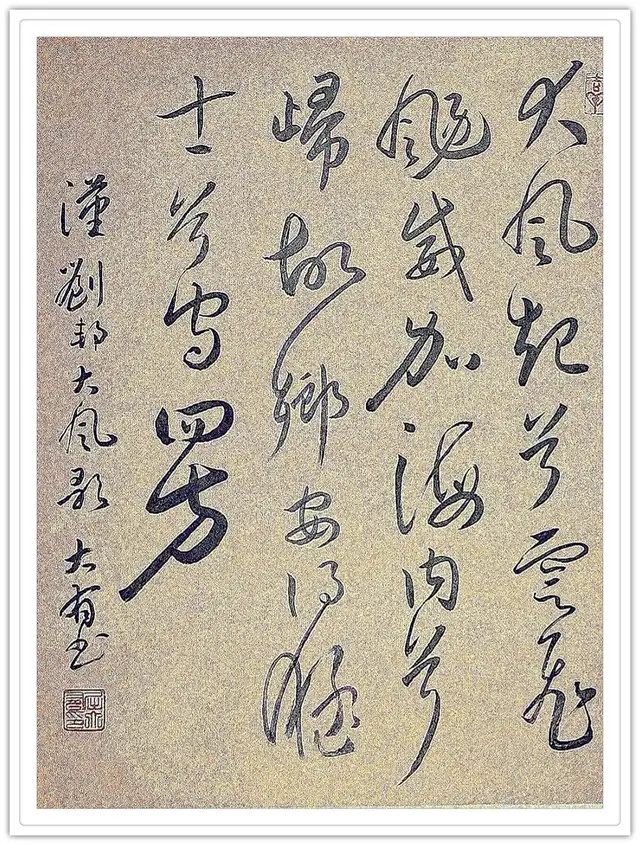 大风起兮雲飛
颺威加海内兮
歸故鄉安得猛
士兮守四方
漢劉邦大風歌 大有书